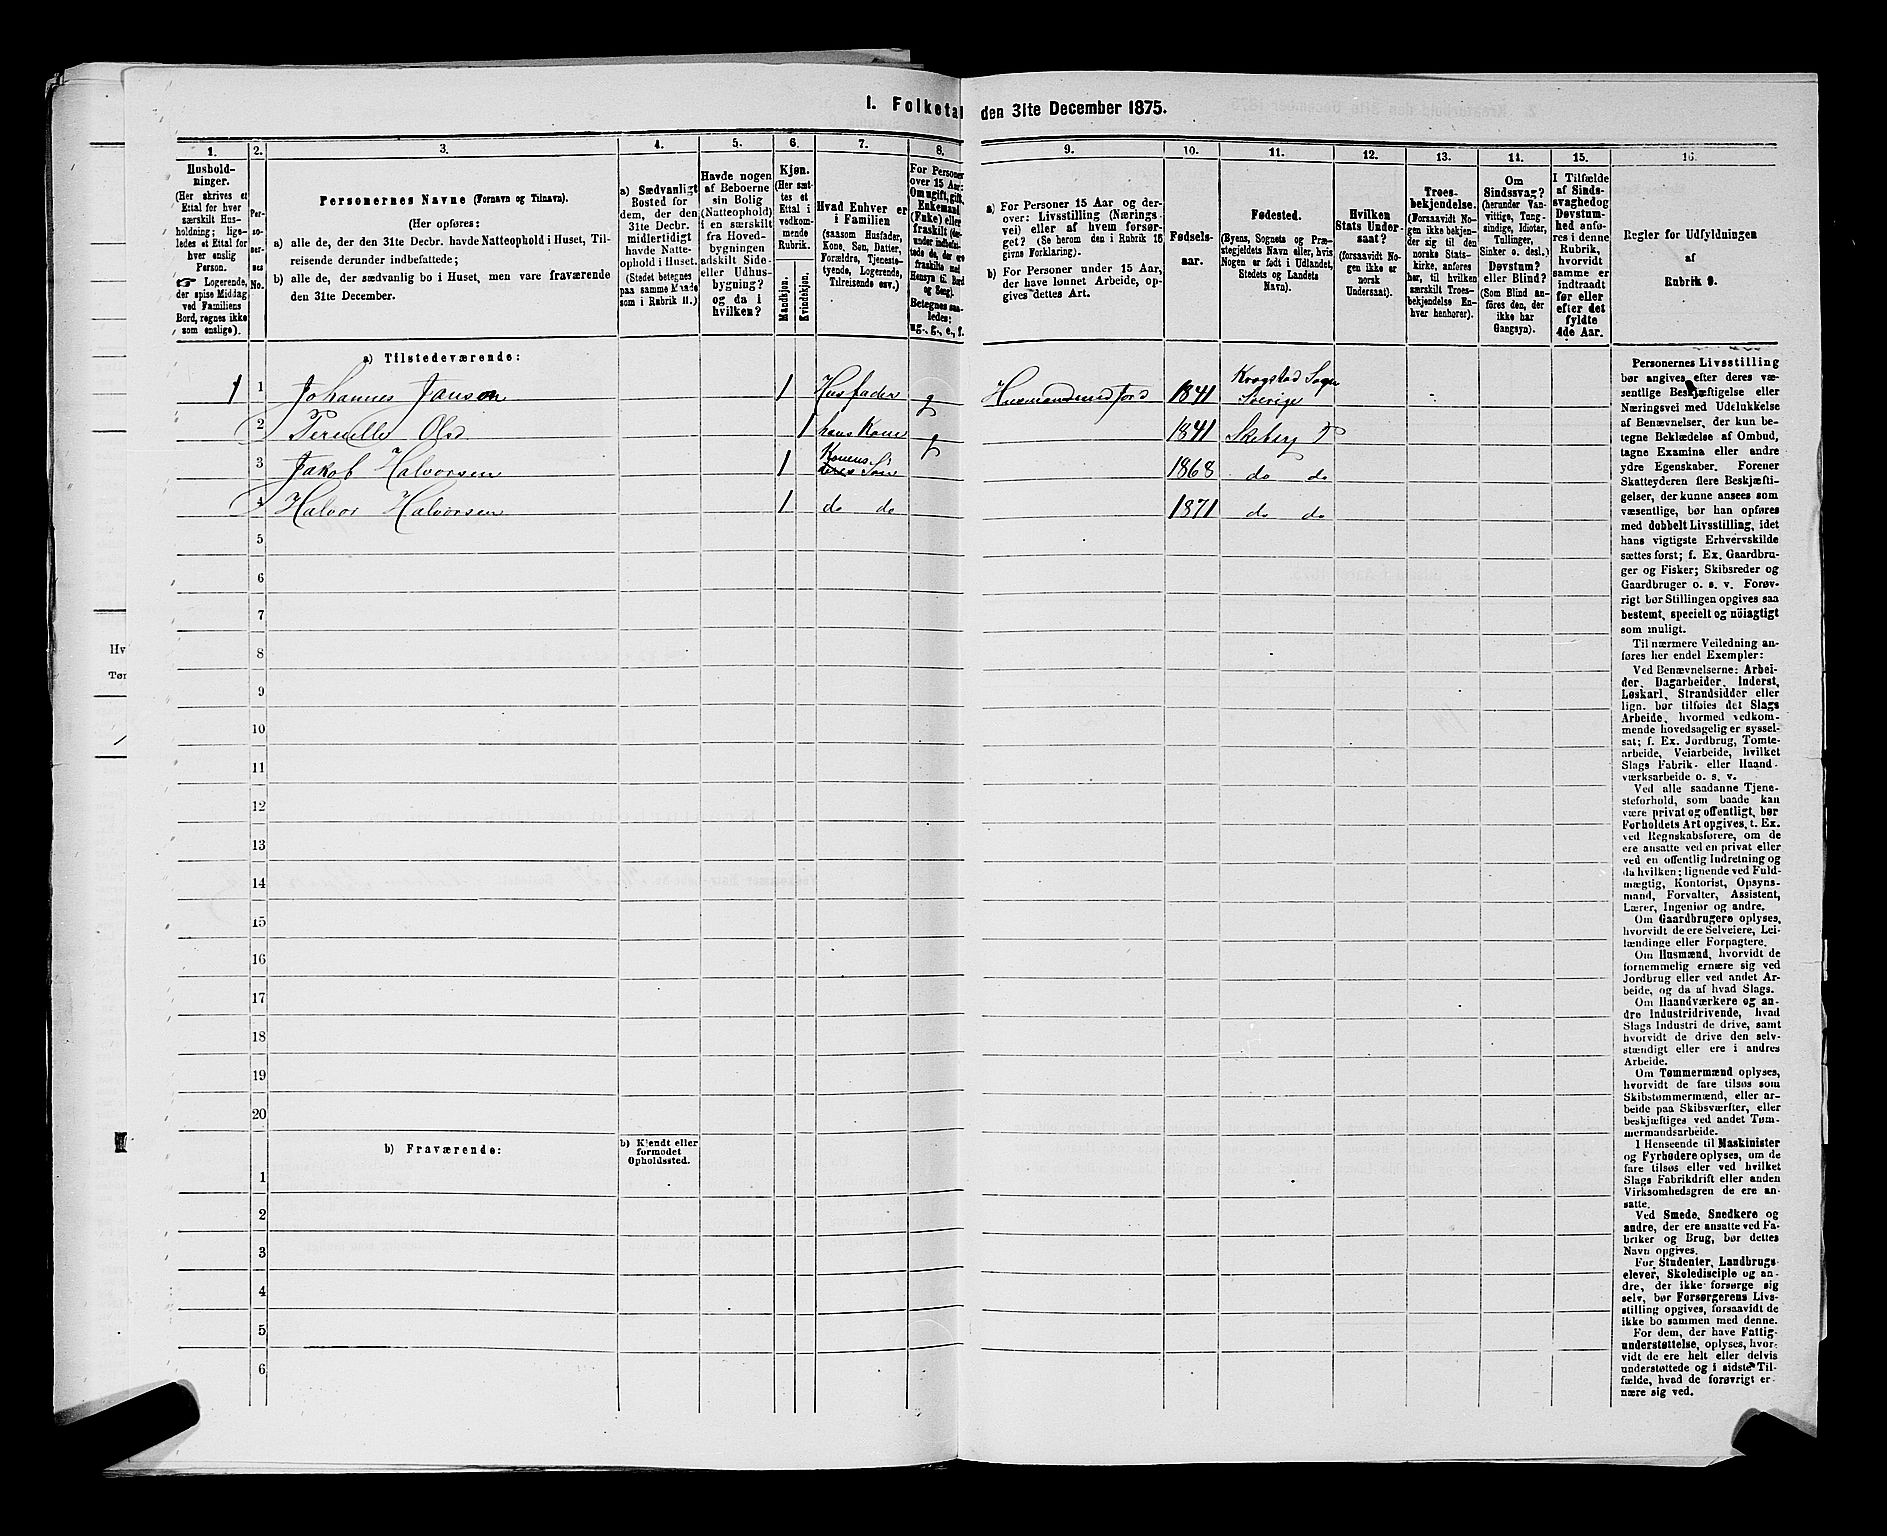 1. Folketal den 31te December 1875.
1. 2. 3. 4. 5. 6. 7. 8. 9. 10. 11. 12. 13. 14. 15. 16.
Hushold-
ninger.
(Her skrives et
Ettal for hver
særskilt Hus-
holdning; lige-
ledes et Ettal for
hver enslig
Person.
☛ Logerende,
der spise Middag
ved Familiens
Bord, regnes ikke
som enslige).
Per-
so-
ner-
nes
No.
Personernes Navne (Fornavn og Tilnavn).
(Her opføres:
a) alle de, der den 31te Decbr. havde Natteophold i Huset, Til-
reisende derunder indbefattede;
b) alle de, der sædvanlig bo i Huset, men vare fraværende
den 31te December.
a) Sædvanligt
Bosted for
dem, der den
31te Decbr.
midlertidigt
havde Natte-
ophold i Huset.
(Stedet betegnes
paa samme Maade
som i Rubrik 11.)
Havde nogen
af Beboerne
sin Bolig
(Natteophold)
i en særskilt
fra Hoved-
bygningen
adskilt Side-
eller Udhus-
bygning?
og da i
hvilken?
Kjøn.
(Her sæt-
tes et
Ettal i
vedkom-
mende
Rubrik.
Mandkjøn.
Kvindekjøn.
Hvad Enhver er
i Familien
(saasom Husfader,
Kone, Søn, Datter,
Forældre, Tjeneste-
tyende, Logerende,
Tilreisende osv.)
For Personer
over 15 Aar:
Om ugift, gift,
Enkemand
(Enke) eller
fraskilt (der-
under indbefat-
tede de, der ere
fraskilte med
Hensyn til Bord
og Seng).
Betegnes saa-
ledes:
ug., g., e., f.
a) For Personer 15 Aar og der-
over: Livsstilling (Nærings-
vei) eller af hvem forsør-
get? (Se herom den i Rubrik 16
givne Forklaring).
b) For Personer under 15 Aar,
der have lønnet Arbeide, op-
gives dettes Art.
Fødsels-
aar.
Fødested.
(Byens, Sognets og Præ-
stegjeldets Navn eller, hvis
Nogen er født i Udlandet,
Stedets og Landets
Navn).
Hvilken
Stats Under-
saat?
(forsaavidt No-
gen ikke er
norsk
Undersaat).
Troes-
bekjendelse.
(Forsaavidt No-
gen ikke bekjen-
der sig til den
norske Stats-
kirke, anføres
her, til hvilken
særskilt Troes-
bekjendelse En-
hver henhører).
Om
Sindssvag?
(herunder Van-
vittige, Tung-
sindige, Idioter,
Tullinger,
Sinker o. desl.)
Døvstum?
eller Blind?
(Som Blind an-
føres den, der
ikke har
Gangsyn).
I Tilfælde
af Sinds-
svaghed og
Døvstum-
hed anfø-
res i denne
Rubrik
hvorvidt
samme er
indtraadt
før eller
efter det
fyldte
4de Aar.
Regler for Udfyldningen
af
Rubrik 9.
a) Tilstedeværende:
1 1 Johannes Janson 1 Husfader g Husmand med Jord 1841 Krogstad Sogn Sverige
2 Pernille Olsd 1 hans Kone g 1841 Skeberg P
3 Jakob Halvorsen 1 Konens Søn 1868 do do
4 Halvor Halvorsen 1 do do 1871 do do
5
6
7
8
9
10
11
12
13
14
15
16
17
18
19
20
b) Fraværende:
b) Kjendt eller
formodet
Opholdssted.
1
2
3
4
5
6
Personernes Livsstilling
bør angives efter deres væ-
sentlige Beskjæftigelse eller
Næringsvei med Udelukkelse
af Benævnelser, der kun be-
tegne Beklædelse af Ombud,
tagne Examina eller andre
ydre Egenskaber. Forener
Skatteyderen flere Beskjæfti-
gelser, der kunne ansees som
væsentlige, bør han opføres
med dobbelt Livsstilling, idet
hans vigtigste Erhvervskilde
sættes først; f. Ex. Gaardbru-
ger og Fisker; Skibsreder og
Gaardbruger o. s. v. Forøv-
rigt bør Stillingen opgives saa
bestemt, specielt og nöiagtigt
som muligt.
Til nærmere Veiledning an-
føres her endel Exempler:
Ved Benævnelserne: Arbei-
der, Dagarbeider, Inderst,
Løskarl, Strandsidder eller
lign. bør tilføies det Slags
Arbeide, hvormed vedkom-
mende hovedsagelig er syssel-
sat; f. Ex. Jordbrug, Tomte-
arbeide, Veiarbeide, hvilket
Slags Fabrik- eller Haand-
værksarbeide o. s. v.
Ved alle saadanne Tjene-
steforhold, som baade kan
være privat og offentligt, bør
Forholdets Art opgives, t. Ex.
ved Regnskabsførere, om de
ere ansatte ved en privat eller
ved en offentlig Indretning og
da hvilken; lignende ved Fuld-
mægtig, Kontorist, Opsyns-
mand, Forvalter, Assistent,
Lærer, Ingeniør og andre.
Om Gaardbrugere oplyses,
hvorvidt de ere Selveiere, Lei-
lændinge eller Forpagtere.
Om Husmænd, hvorvidt de
fornemmelig ernære sig ved
Jordbrug eller ved andet Ar-
beide, og da af hvad Slags.
Om Haandværkere og an-
dre Industridrivende, hvad
Slags Industri de drive, samt
hvorvidt de drive den selv-
stændigt eller ere i andres
Arbeide.
Om Tømmermænd oplyses,
hvorvidt de fare tilsøs som
Skibstømmermænd, eller ar-
beide paa Skibsværfter, eller
beskjæftiges ved andet Tøm-
mermandsarbeide.
I Henseende til Maskinister
og Fyrbødere oplyses, om de
fare tilsøs eller ved hvilket
Slags Fabrikdrift eller anden
Virksomhedsgren de ere an-
satte.
Ved Smede, Snedkere og
andre, der ere ansatte ved Fa-
briker og Brug, bør dettes
Navn opgives.
For Studenter, Landbrugs-
elever, Skoledisciple og an-
dre, der ikke forsørge sig
selv, bør Forsørgerens Livs-
stilling opgives, forsaavidt de
ikke bo sammen med denne.
For dem, der have Fattig-
understøttelse, oplyses, hvor-
vidt de ere helt eller delvis
understøttede og i sidste Til-
fælde, hvad de forøvrigt er-
nære sig ved.